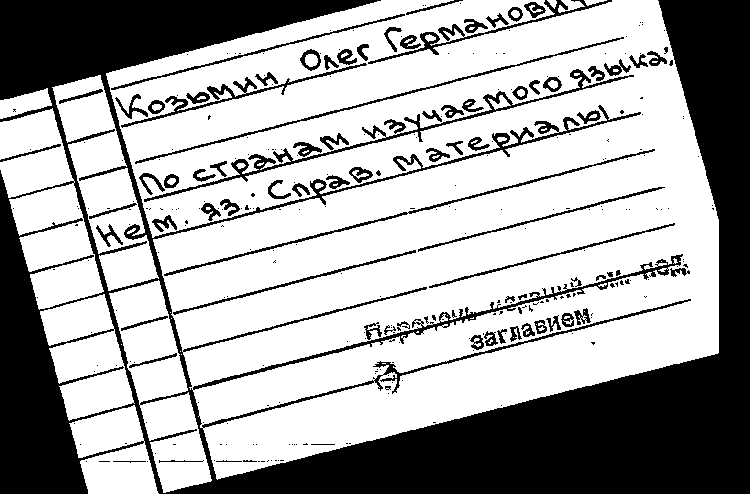 Козьмин, Олег Германович
По странам изучаемого языка:
Нем. яз.: Справ. материалы.
Перечень изданий см. под
заглавием